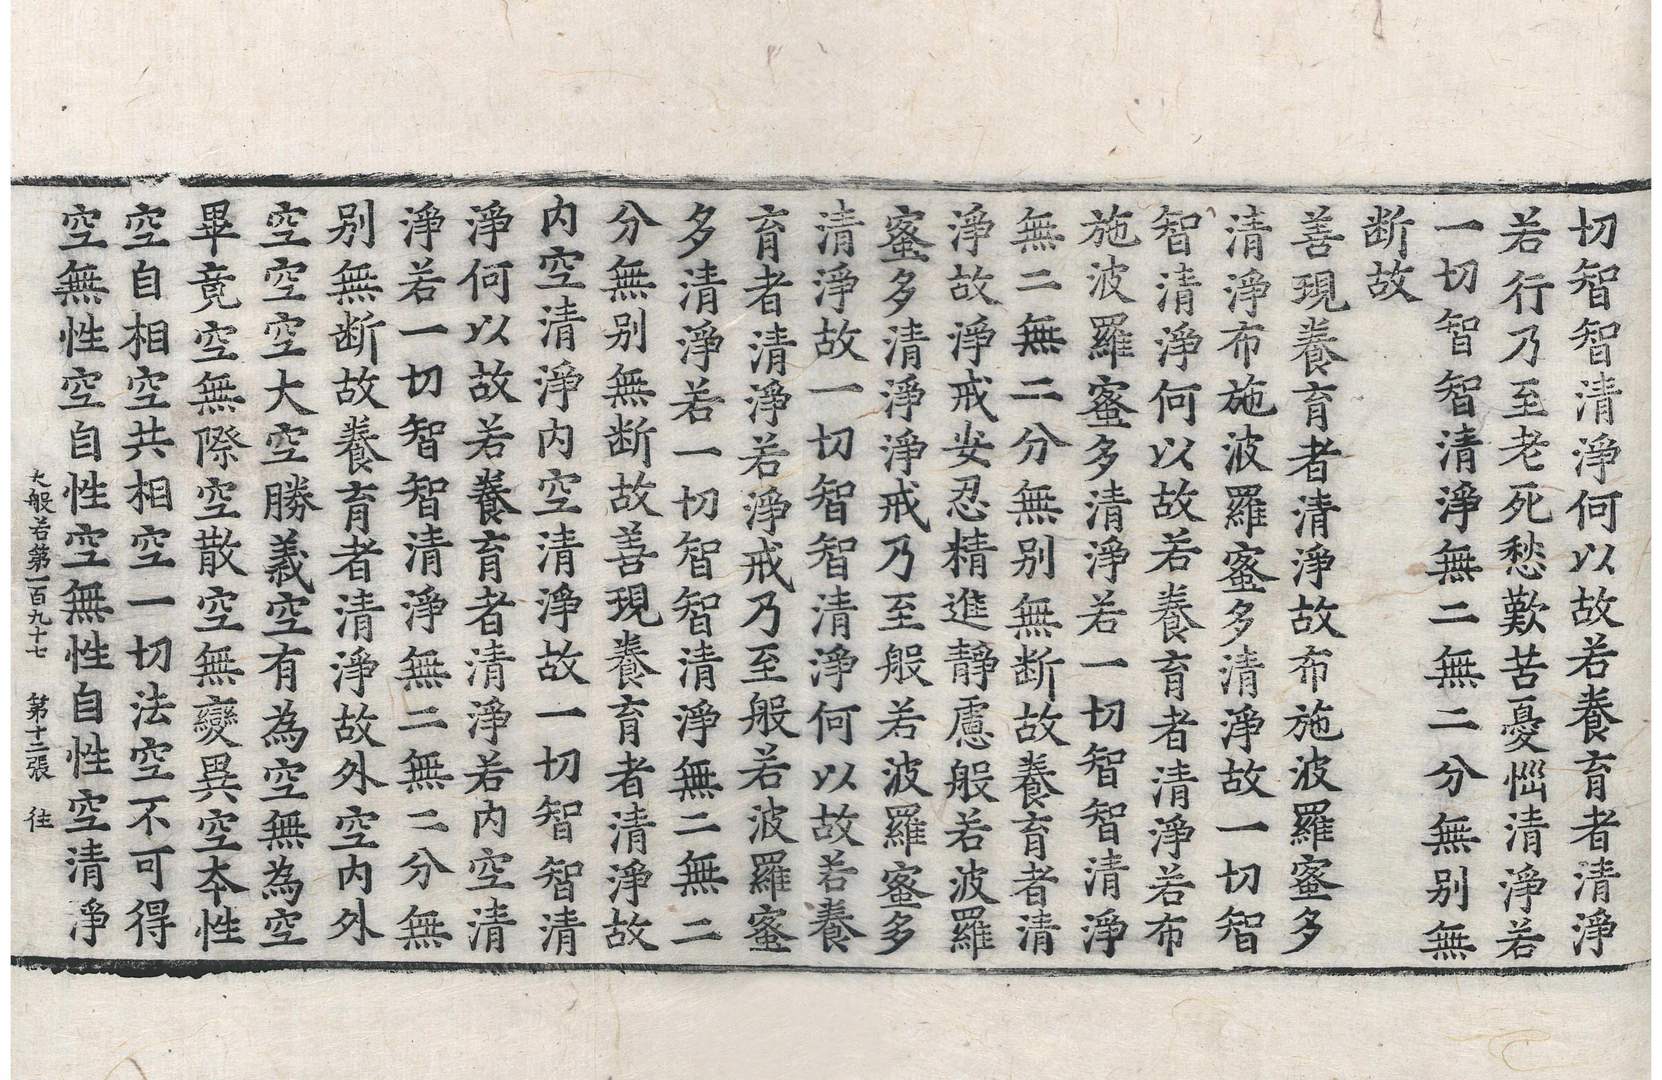 切智智清淨何以故若養育者清淨
若行乃至老死愁歎苦憂惱清淨若
一切智智清淨無二無二分無别無
断故
善現養育者清淨故布施波羅蜜多
清淨布施波羅蜜多清淨故一切智
智清淨何以故若養育者清淨若布
施波羅蜜多清淨若一切智智清淨
無二無二分無别無断故養育者清
淨故淨戒安忍精進靜慮般若波羅
蜜多清淨淨戒乃至般若波羅蜜多
清淨故一切智智清淨何以故若養
育者清淨若淨戒乃至般若波羅蜜
多清淨若一切智智清淨無二無二
分無别無断故善現養育者清淨故
内空清淨内空清淨故一切智智清
淨何以故若養育者清淨若内空清
淨若一切智智清淨無二無二分無
别無断故養育者清淨故外空内外
空空空大空勝義空有為空無為空
畢竟空無際空散空無變異空夲性
空自相空共相空一切法空不可得
空無性空自性空無性自性空清淨
大般若第一百九十七 第十二張 往